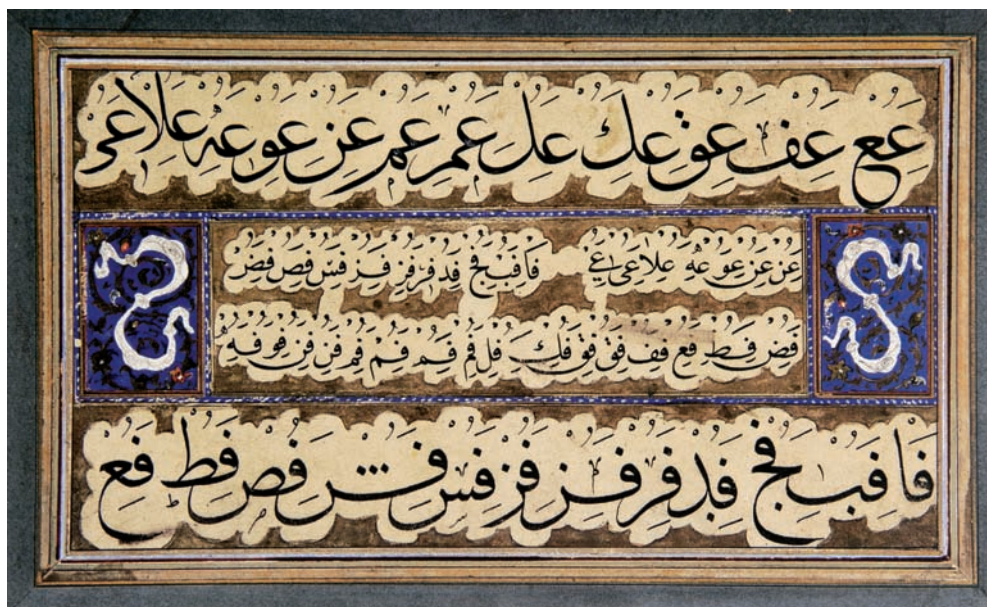 عع عف عق عك عل عم عم عن عو عه علا عى
عن عن عو عه علا عى عى فا فب فج فد فر فر فر فس فص فض
فض فط فع فف فق فق فك فل فم فم فم فم فن فن فو فه
فا فب فج فد فر فر فر فس فس فص فط فع